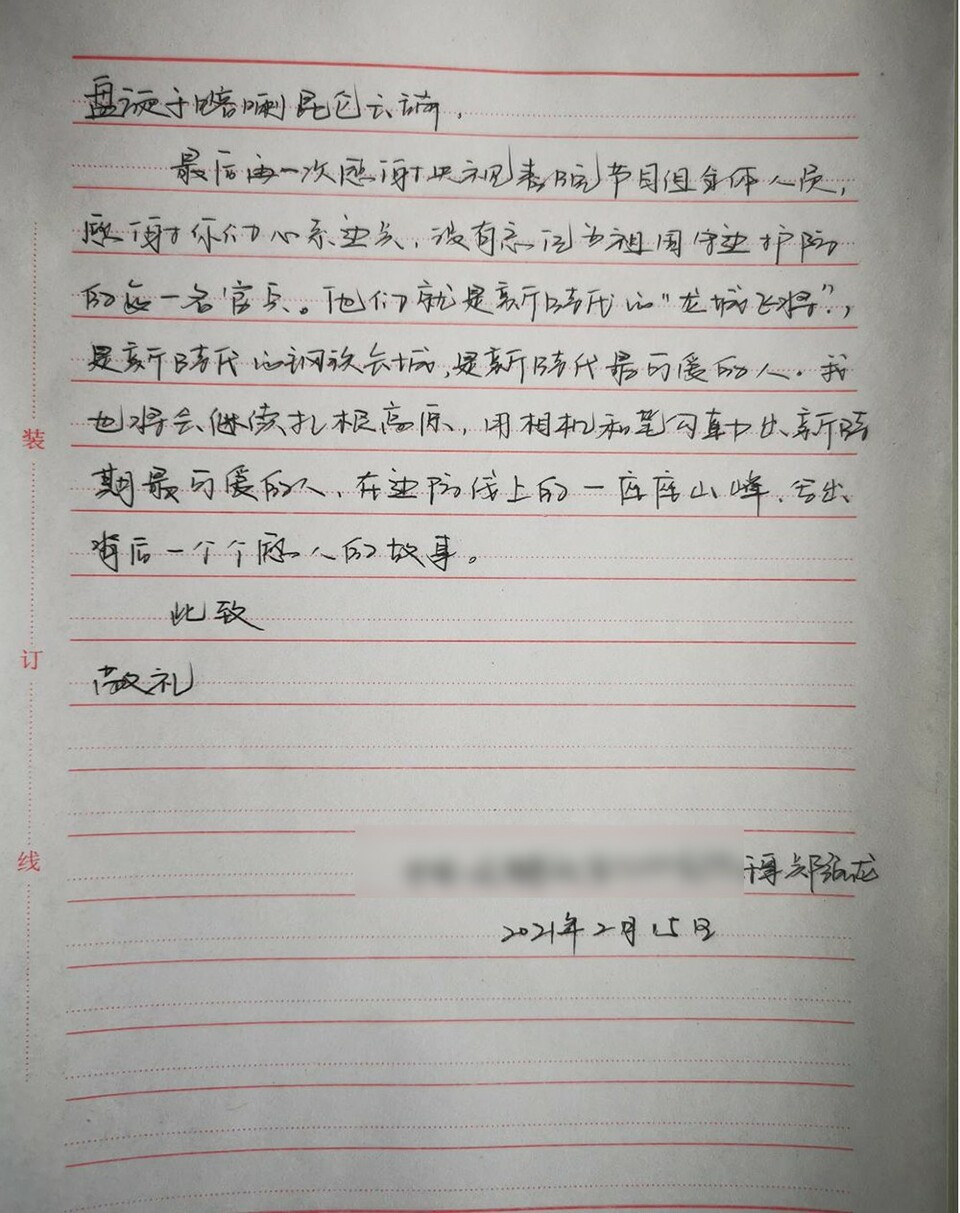 盘旋于喀喇昆仑云端。
最后再一次感谢央视春晚节目组全体人员,
感谢你们心系边关,没有忘记为祖国守边护防
的每一名官兵。他们就是新时代的“龙城飞将”,
是新时代的钢铁长城,是新时代最可爱的人。我
也将会继续扎根高原,用相机和笔勾勒出新时
期最可爱的人,在边防线上的一座座山峰,写出
背后一个个感人的故事。
此致
敬礼
干事 郑强龙
2021年2月15日
装
订
线